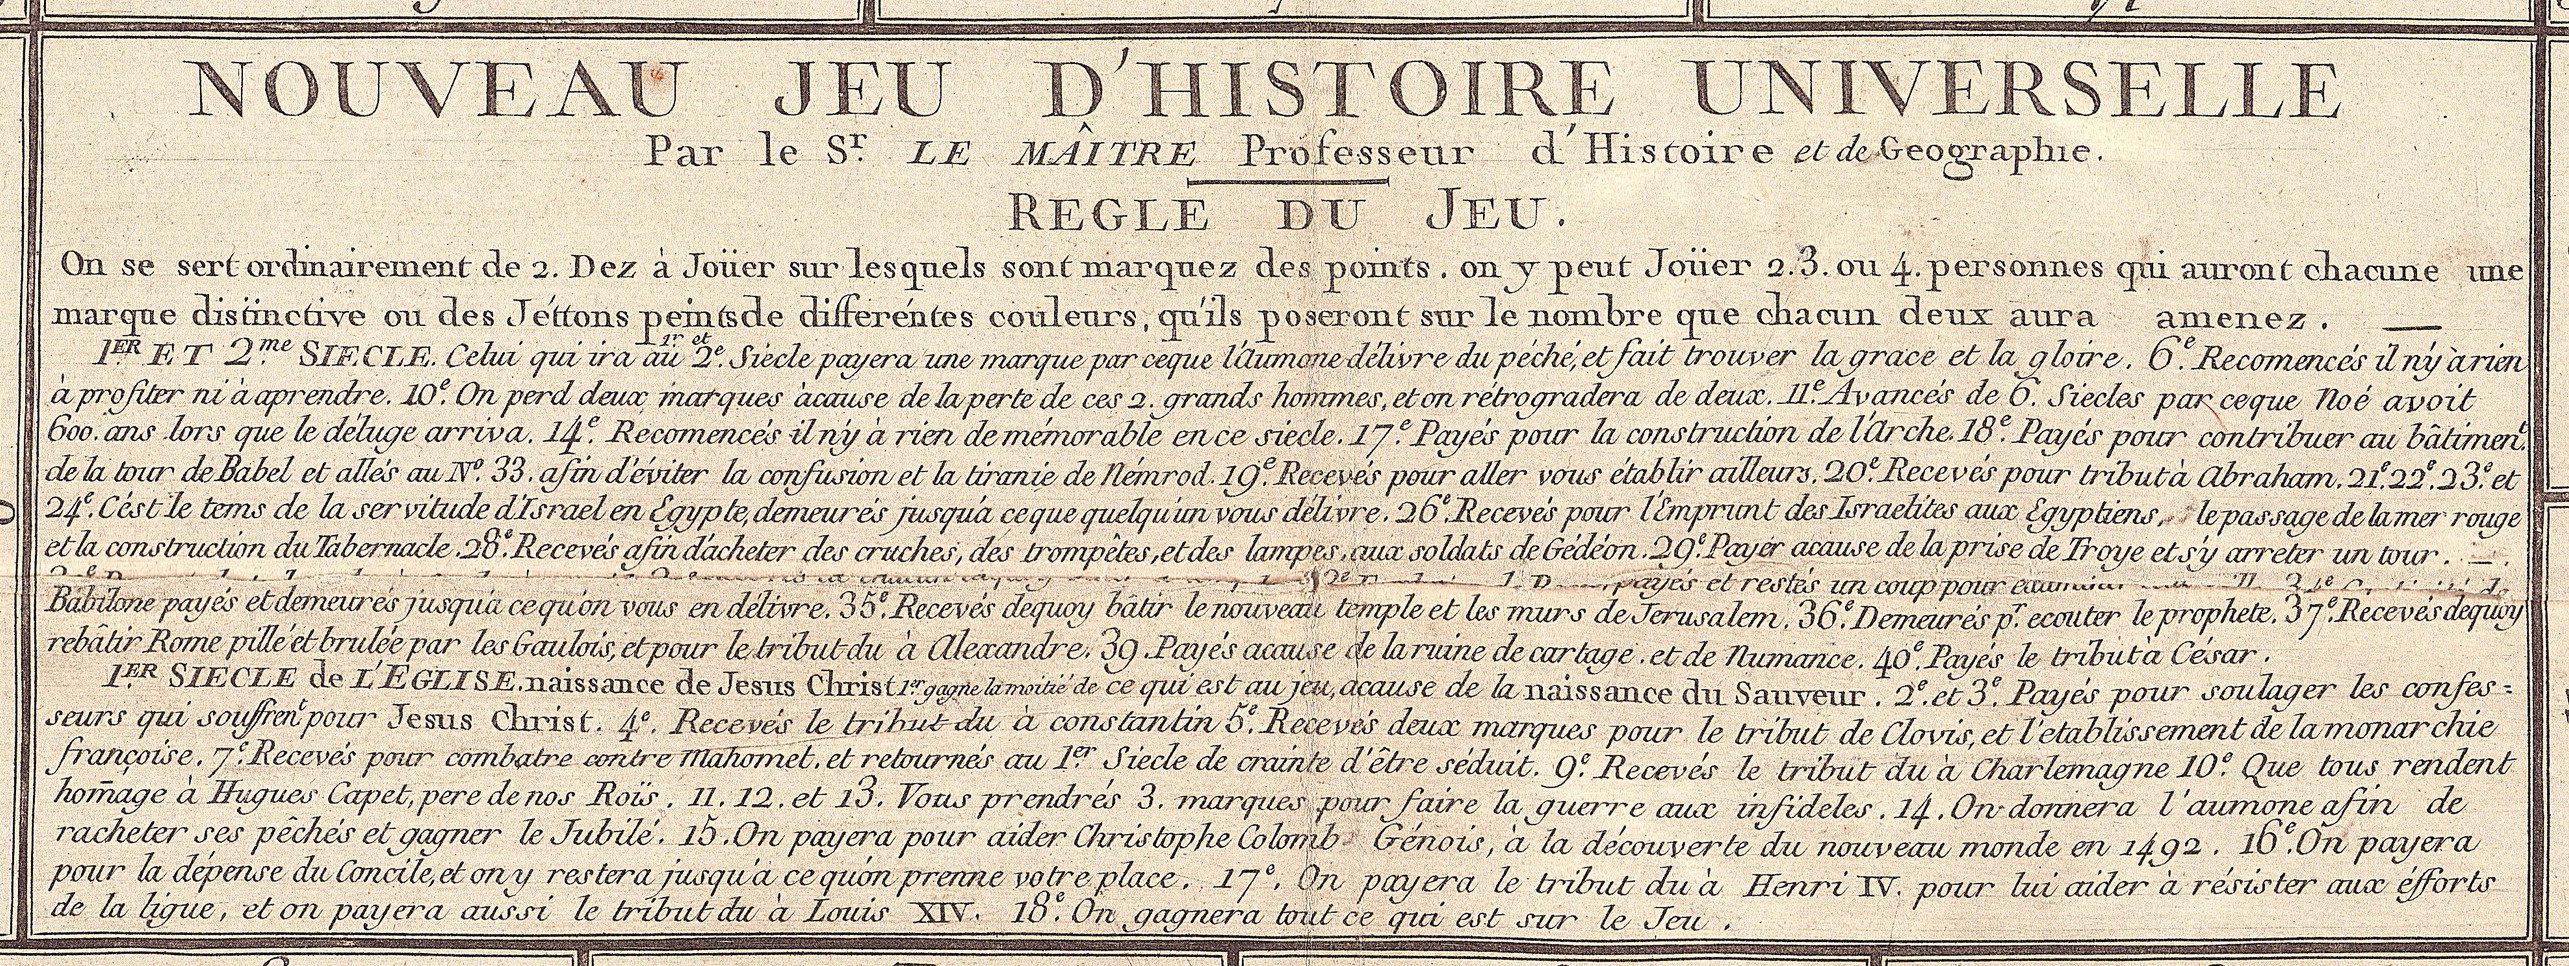 NOUVEAU JEU D'HISTOIRE UNIVERSELLE
Par le Sr. LE MAÎTRE Professeur d'Histoire et de Geographie.
REGLE DU JEU.
On se sert ordinairement de 2. Dez à Joüer sur lesquels sont marquez des points. on y peut Joüer 2.3. ou 4. personnes qui auront chacune une
marque distinctive ou des Jéttons peints de differéntes couleurs, qu'ils poseront sur le nombre que chacun deux aura amenez.
1ER ET 2me SIECLE. Celui qui ira au 1r et 2e. Siecle payera une marque par ceque l'Aumone délivre du péché, et fait trouver la grace et la gloire. 6e. Recomencés il n'y à rien
à profiter ni à aprendre. 10e. On perd deux marques àcause de la perte de ces 2. grands hommes, et on rétrogradera de deux. 11e. Avancés de 6. Siecles par ceque Noé avoit
600. ans lors que le déluge arriva. 14e. Recomencés il n'y à rien de mémorable en ce siecle. 17e. Payés pour la construction de l'Arche. 18e. Payés pour contribuer au bâtiment.
de la tour de Babel et allés au No. 33. afin d'éviter la confusion et la tiranie de Némrod. 19e. Recevés pour aller vous établir ailleurs. 20e. Recevés pour tribut à Abraham. 21e. 22e. 23e. et
24e. C'ést le tems de la servitude d'Israel en Egypte, demeurés jusqu'a ce que quelqu'un vous délivre. 26e. Recevés pour l'Emprunt des Israelites aux Egyptiens, le passage de la mer rouge
et la construction du Tabernacle. 28e. Recevés afin d'acheter des cruches, des trompêtes, et des lampes, aux soldats de Gédéon. 29e. Payér acause de la prise de Troye et s'y arreter un tour.
payés et restés un coup pour
Babilone payés et demeurés jusqu'a ce qu'on vous en délivre. 35e. Recevés dequoy bâtir le nouveau temple et les murs de Jerusalem. 36e. Demeurés pr. ecouter le prophete. 37e. Recevés dequoy
rebâtir Rome pillé et brulée par les Gaulois, et pour le tribut du à Alexandre. 39. Payés acause de la ruine de cartage. et de Numance. 40e. Payés le tribut à César.
1ER SIECLE de L'EGLISE. naissance de Jesus Christ 1er. gagne la moitié de ce qui est au jeu, acause de la naissance du Sauveur. 2e. et 3e. Payés pour soulager les confes=
seurs qui souffrent pour Jesus Christ. 4e. Recevés le tribut du à constantin 5e. Recevés deux marques pour le tribut de Clovis, et l'etablissement de la monarchie
françoise. 7e. Recevés pour combatre contre Mahomet. et retournés au 1er Siecle de crainte d'être séduit. 9e. Recevés le tribut du à Charlemagne 10e. Que tous rendent
hom̄age à Hugues Capet, pere de nos Roïs. 11. 12. et 13. Vous prendrés 3. marques pour faire la guerre aux infideles. 14. On donnera l'aumone afin de
racheter ses pêchés et gagner le Jubilé. 15. On payera pour aider Christophe Colomb Génois, à la découverte du nouveau monde en 1492. 16e. On payera
pour la dépense du Concile, et on y restera jusqu'a ce qu'on prenne votre place. 17e. On payera le tribut du à Henri IV. pour lui aider à résister aux éfforts
de la ligue, et on payera aussi le tribut du à Louis XIV. 18e. On gagnera tout ce qui est sur le Jeu.